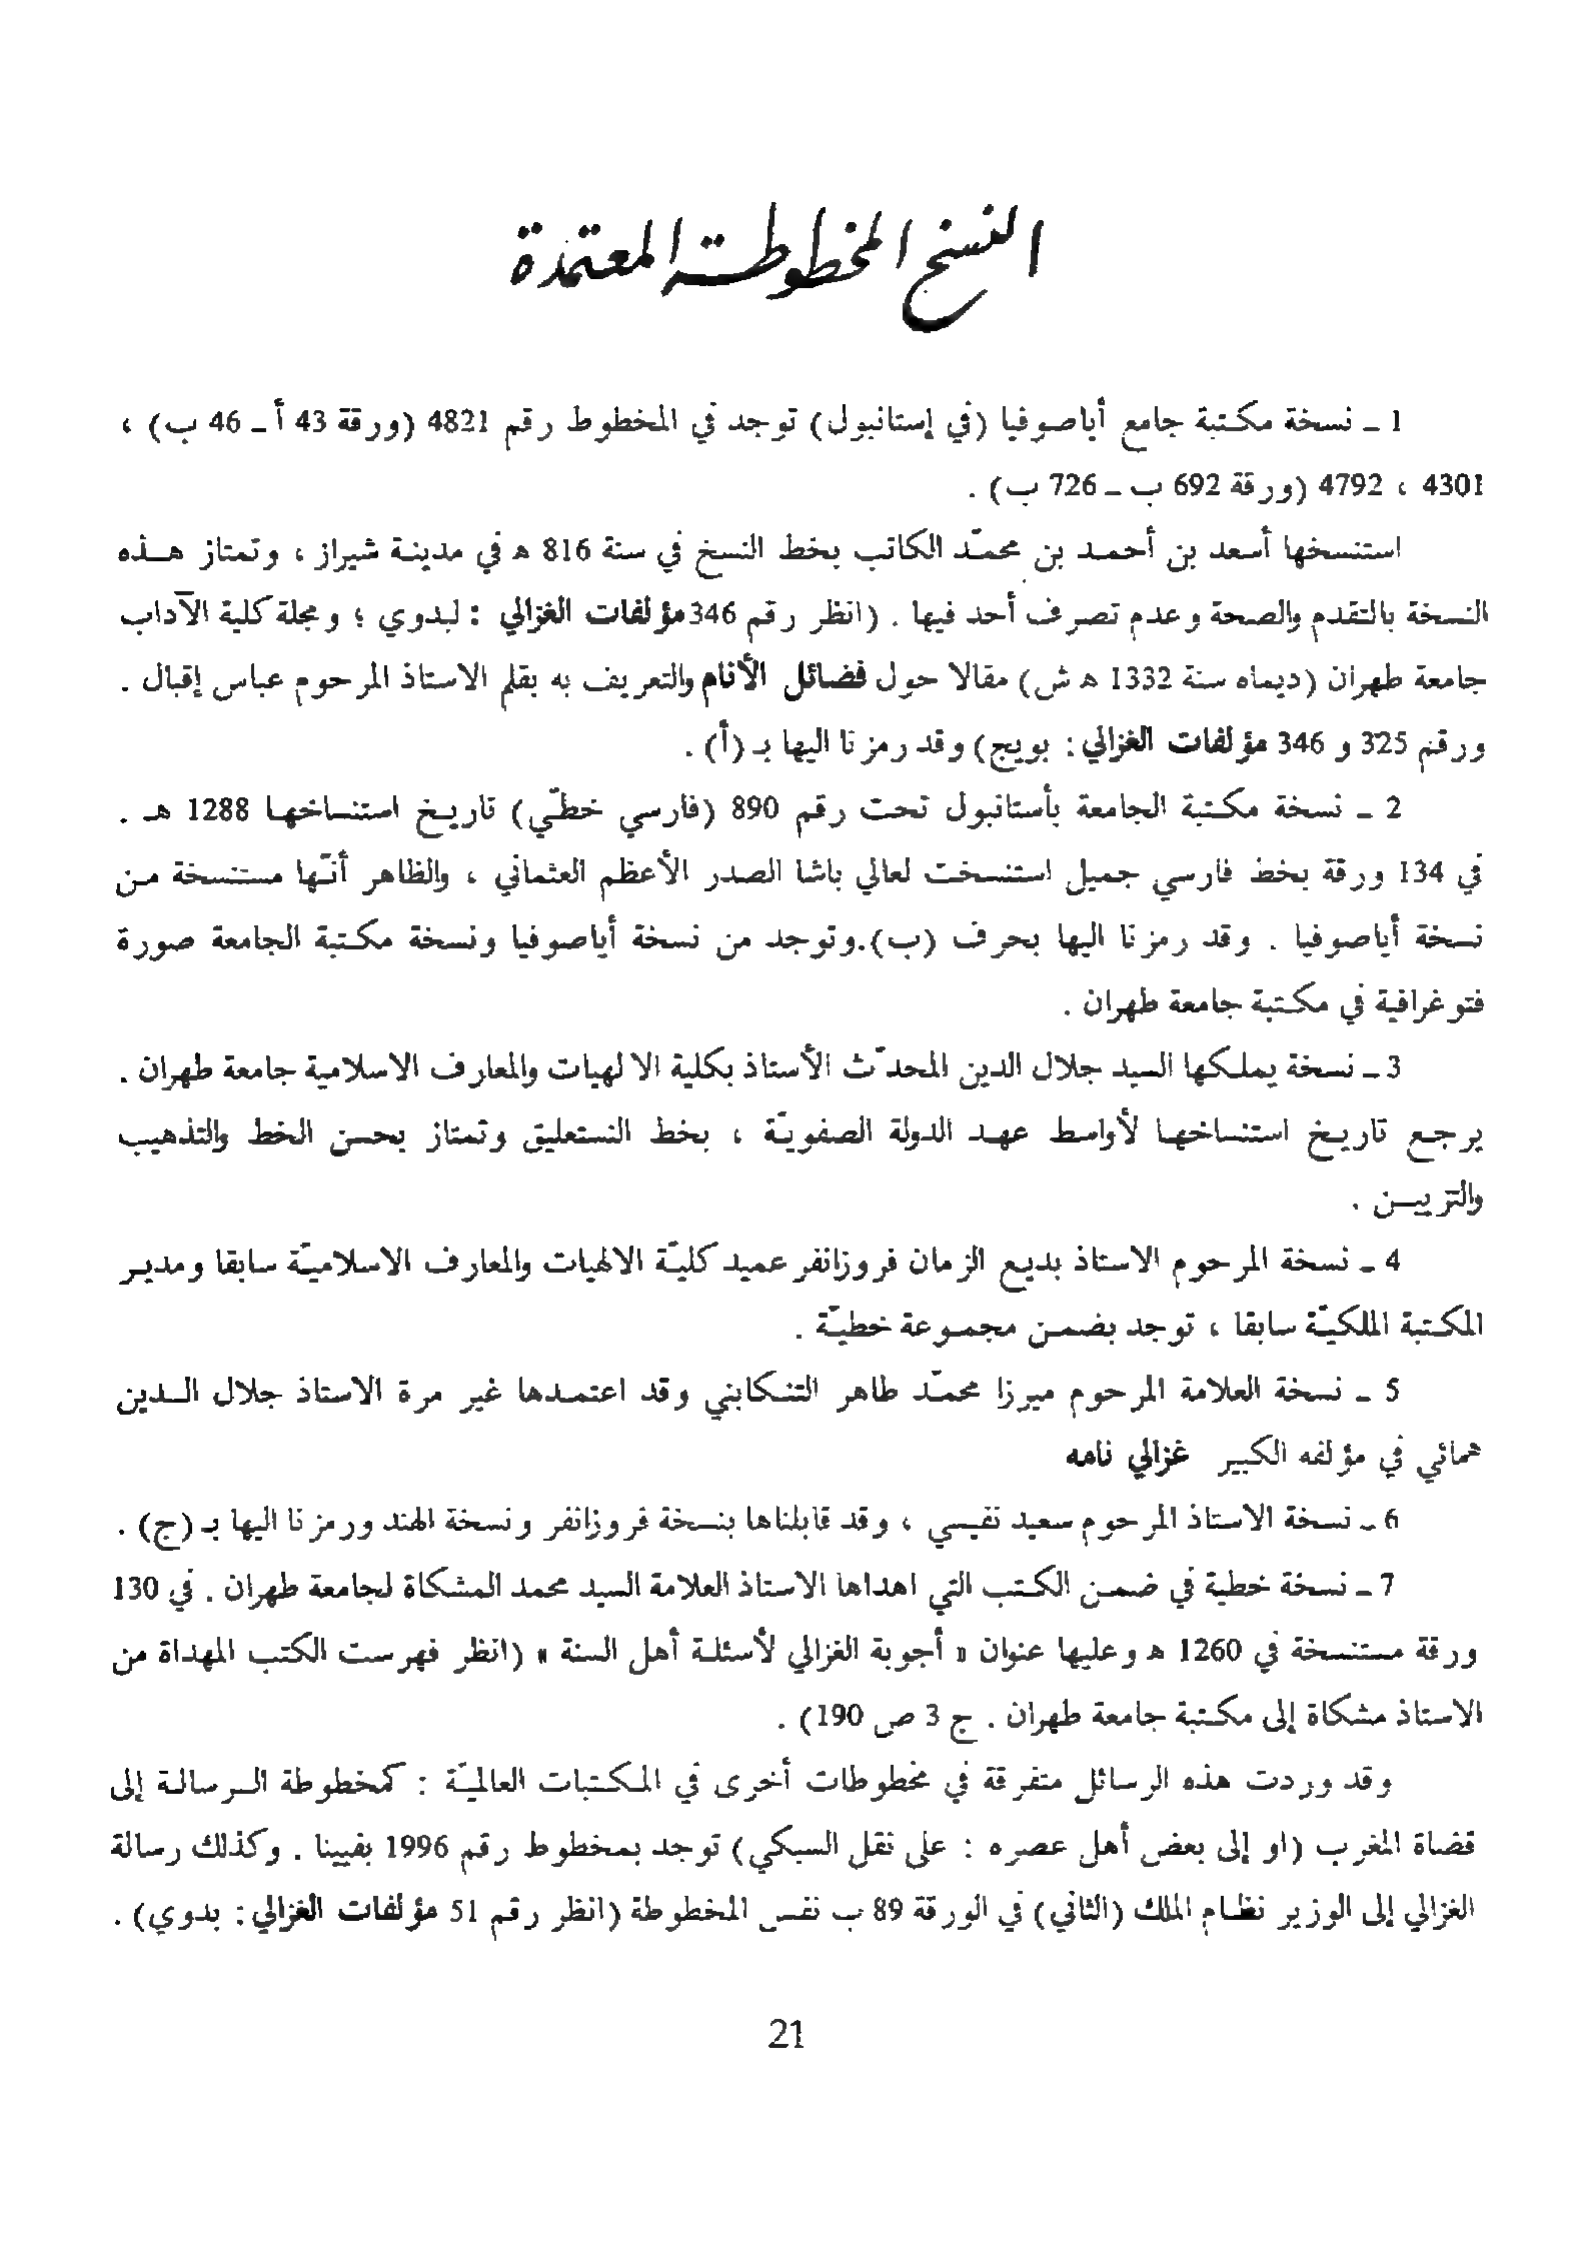 النسخ المخطوطة المعتمدة
1 ـ نسخة مكتبة جامع أياصوفيا (في إستانبول) توجد في المخطوط رقم 4821 (ورقة 43 أ ـ 46 ب) ،
4301 ، 4792 (ورقة 692 ب ـ 726 ب) .
استنسخها أسعد بن أحمد بن محمّد الكاتب بخط النسخ في سنة 816 ه في مدينة شيراز ، وتمتاز هذه
النسخة بالتقدم والصحة وعدم تصرف أحد فيها . (انظر رقم 346 مؤلفات الغزالي : لبدوي ؛ ومجلة كلية الآداب
جامعة طهران (ديماه سنة 1332 ه ش) مقالا حول فضائل الأنام والتعريف به بقلم الاستاذ المرحوم عباس إقبال .
ورقم 325 و 346 مؤلفات الغزالي : بويج) وقد رمزنا اليها بـ (أ) .
2 ـ نسخة مكتبة الجامعة بأستانبول تحت رقم 890 (فارسي خطّي) تاريخ استنساخها 1288 هـ .
في 134 ورقة بخط فارسي جميل استنسخت لعالي باشا الصدر الأعظم العثماني ، والظاهر أنّها مستنسخة من
نسخة أياصوفيا . وقد رمزنا اليها بحرف (ب).وتوجد من نسخة أياصوفيا ونسخة مكتبة الجامعة صورة
فتوغرافية في مكتبة جامعة طهران .
3 ـ نسخة يملكها السيد جلال الدين المحدّث الأستاذ بكلية الالهيات والمعارف الاسلامية جامعة طهران .
يرجع تاريخ استنساخها لأواسط عهد الدولة الصفويّة ، بخط النستعليق وتمتاز بحسن الخط والتذهيب
والتزيين .
4 ـ نسخة المرحوم الاستاذ بديع الزمان فروزانفر عميد كليّة الالهيات والمعارف الاسلاميّة سابقا ومدير
المكتبة الملكيّة سابقا ، توجد بضمن مجموعة خطيّة .
5 ـ نسخة العلامة المرحوم ميرزا محمّد طاهر التنكابني وقد اعتمدها غير مرة الاستاذ جلال الدين
همائي في مؤلفه الكبير غزالي نامه
6 ـ نسخة الاستاذ المرحوم سعيد نفيسي ، وقد قابلناها بنسخة فروزانفر ونسخة الهند ورمزنا اليها بـ (ج) .
7 ـ نسخة خطية في ضمن الكتب التي اهداها الاستاذ العلامة السيد محمد المشكاة لجامعة طهران . في 130
ورقة مستنسخة في 1260 ه وعليها عنوان « أجوبة الغزالي لأسئلة أهل السنة » (انظر فهرست الكتب المهداة من
الاستاذ مشكاة إلى مكتبة جامعة طهران . ج 3 ص 190) .
وقد وردت هذه الرسائل متفرقة في مخطوطات أخرى في المكتبات العالميّة : كمخطوطة الرسالة إلى
قضاة المغرب (او إلى بعض أهل عصره : على نقل السبكي) توجد بمخطوط رقم 1996 بفيينا . وكذلك رسالة
الغزالي إلى الوزير نظام الملك (الثاني) في الورقة 89 ب نفس المخطوطة (انظر رقم 51 مؤلفات الغزالي : بدوي) .
21